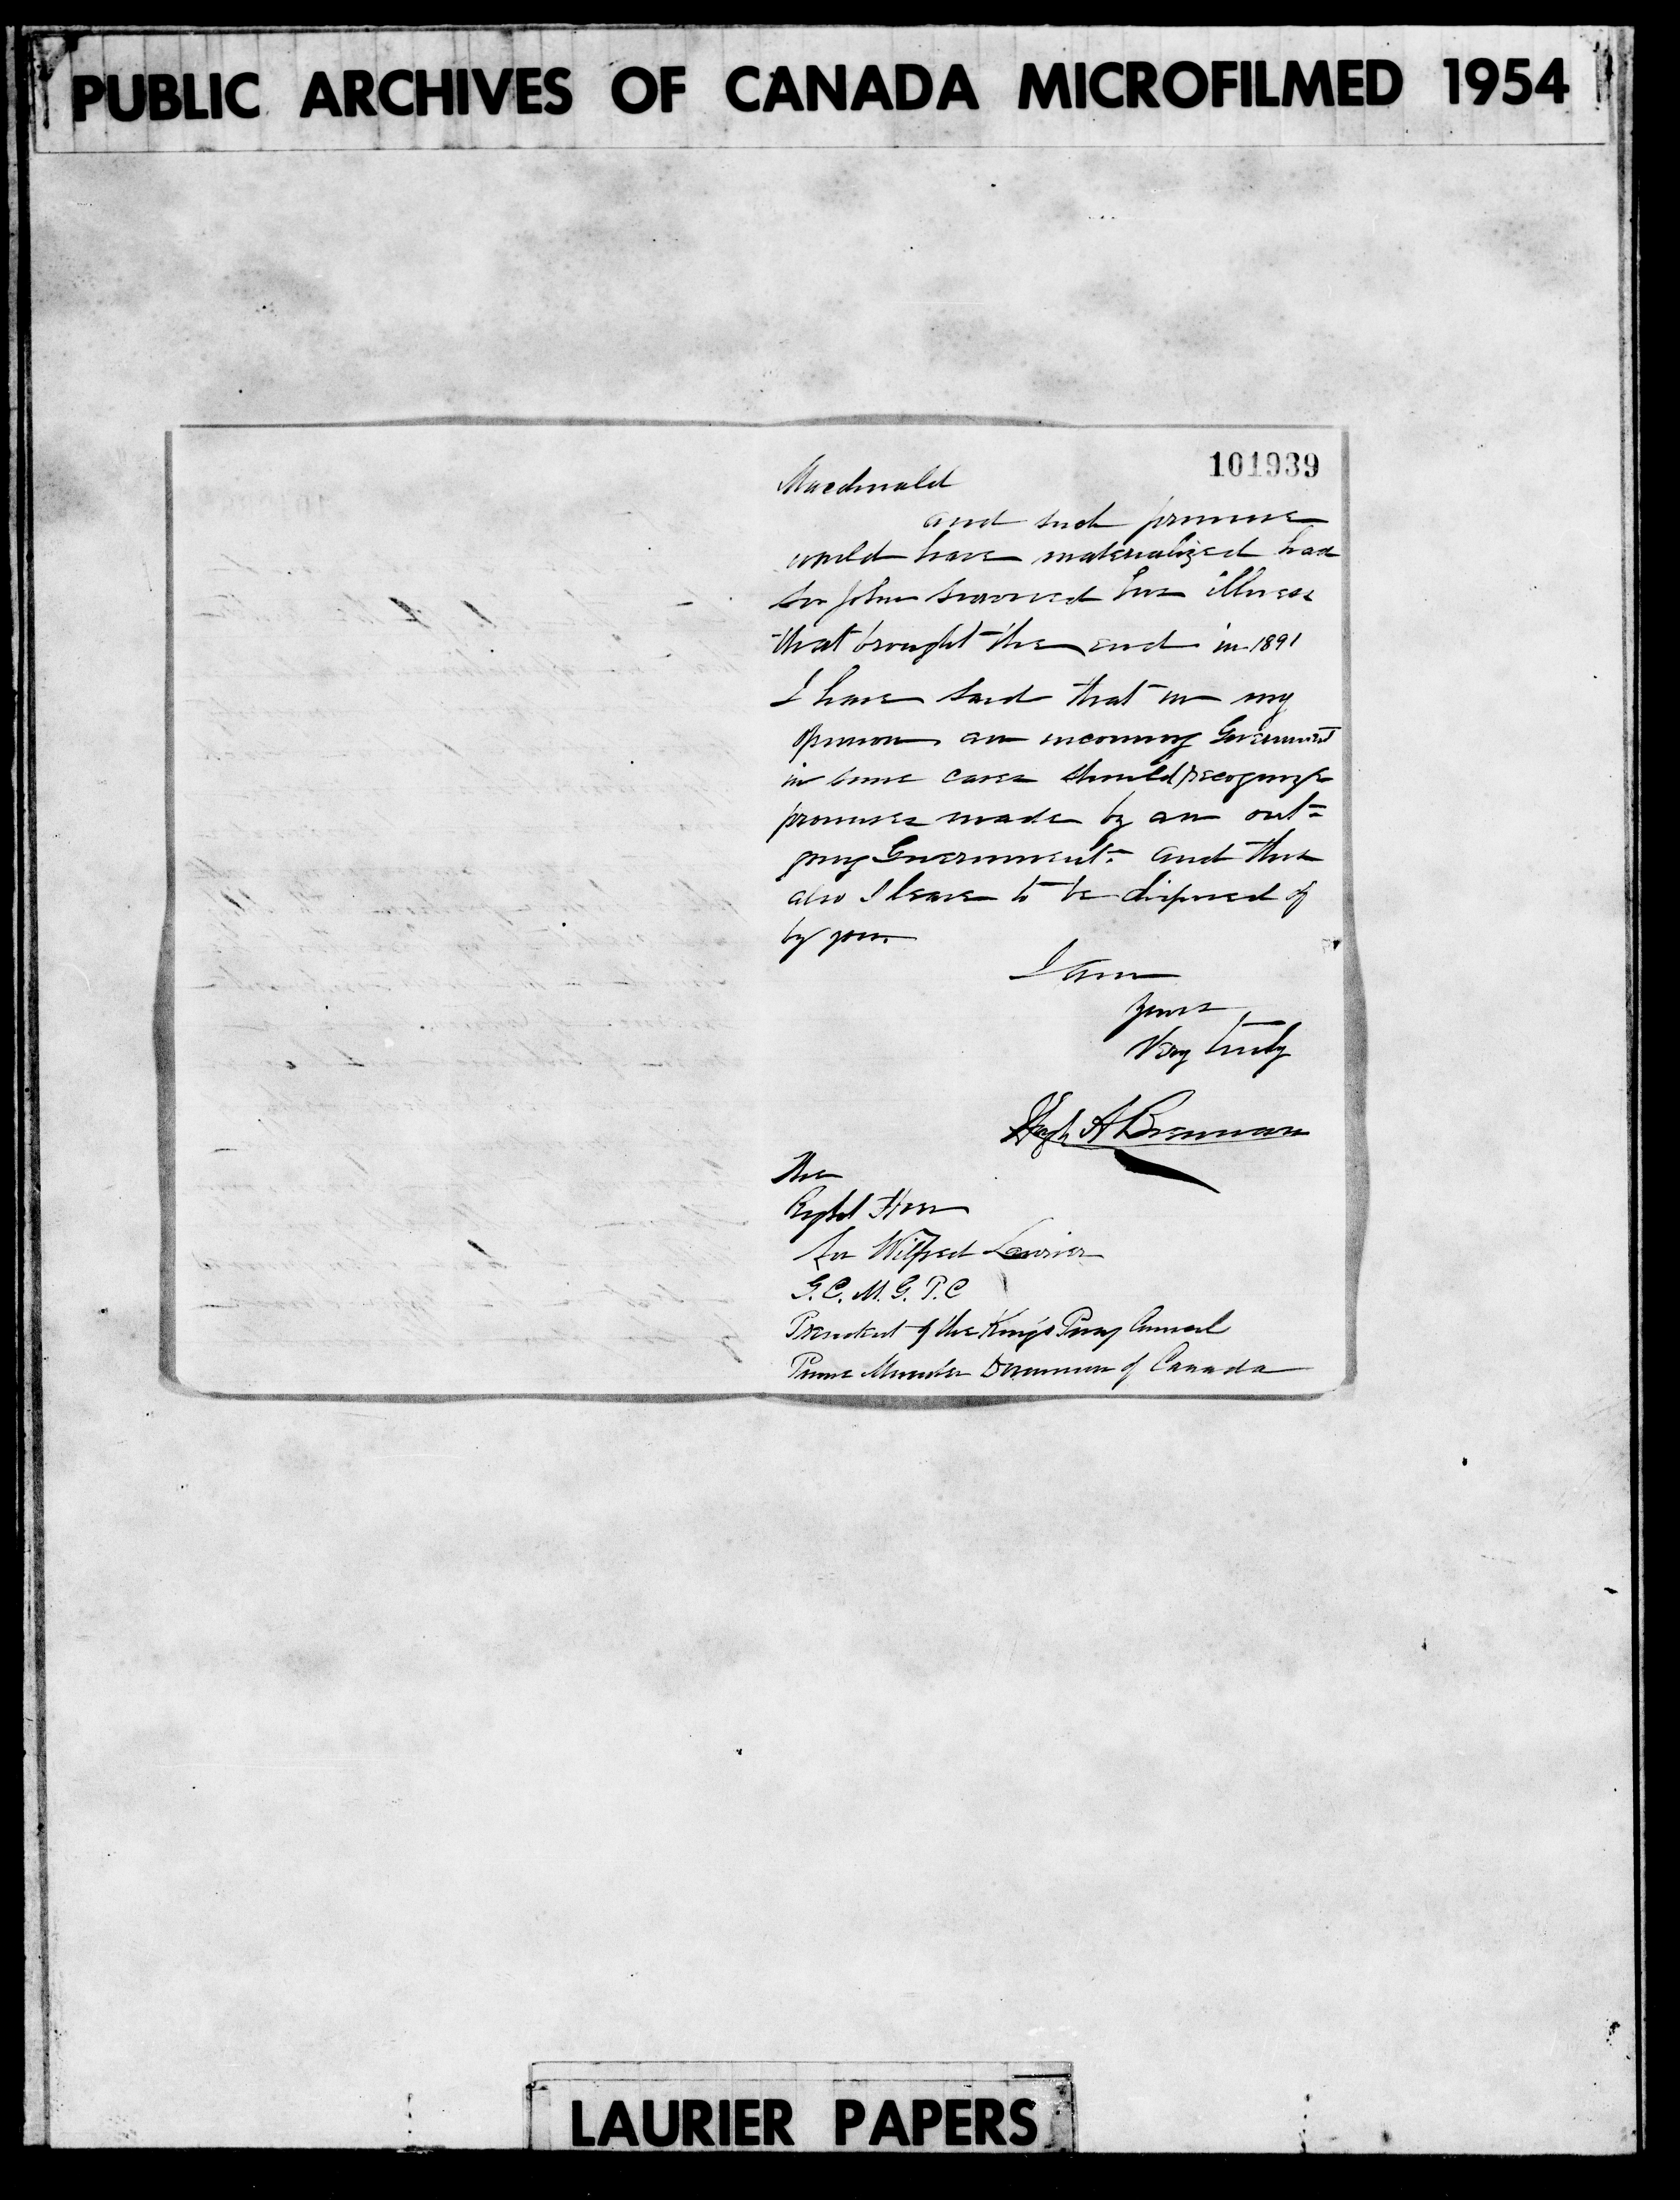 PUBLIC ARCHIVES OF CANADA MICROFILMED 1954
101939
Macdonald
and such promise
would have materialized had
Sir John survived his illness
that brought the end in 1891
I have said that in my
opinion an incoming Government
in some cases should recognize
promises made by an out=
going Government. and this
also I leave to be disposed of
by you.
I am
Yours
Very truly
Hugh A Brennan
The
Right Hon
Sir Wilfred Laurier
G.C.M.G. P.C
President of the King's Privy Council
Prime Minister Dominion of Canada
LAURIER PAPERS